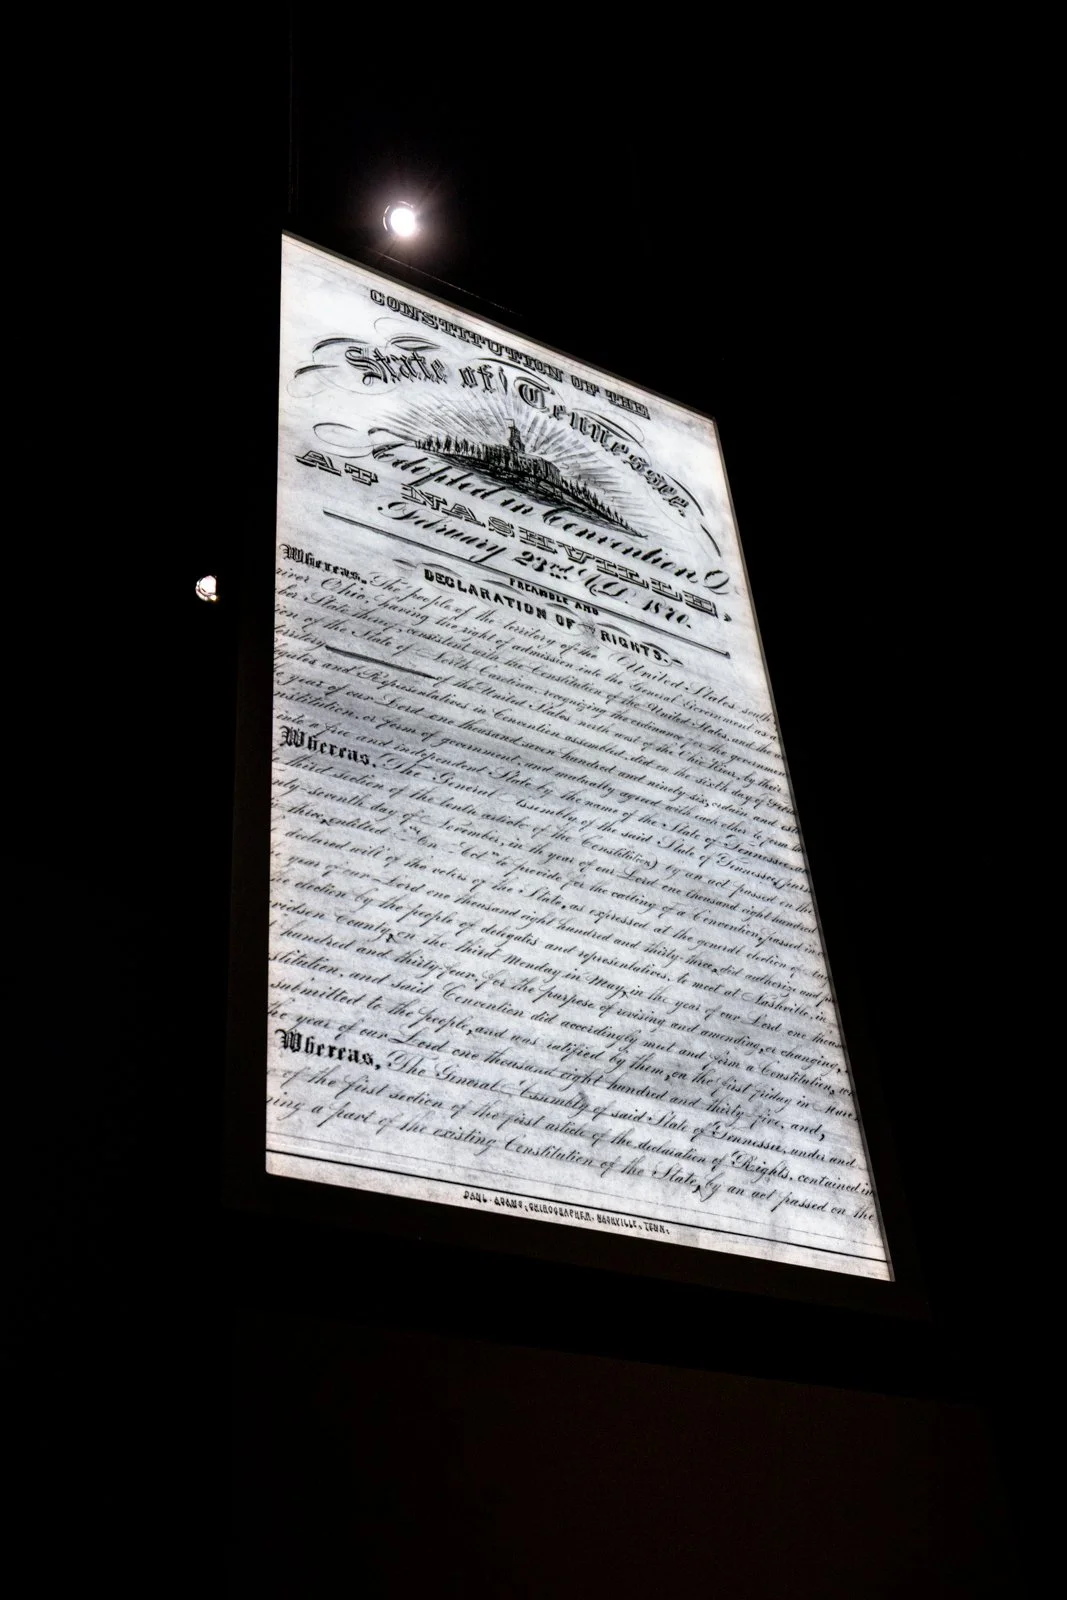 CONSTITUTION OF THE
State of Tennessee,
Adopted in Convention
AT NASHVILLE,
February 23rd A.D. 1870.
PREAMBLE AND
DECLARATION OF RIGHTS.
Whereas, The people of the territory of the United States south
river Ohio, having the right of admission into the General Government as a
ber State thereof, consistent with the Constitution of the United States, and the
tion of the State of North Carolina, recognizing the ordinance for the government
territory of the United States north west of the Ohio River, by their
gates and Representatives in Convention assembled, did on the sixth day of
e year of our Lord one thousand seven hundred and ninety six, ordain and
nstitution, or form of government, and mutually agree with each other to form
into a free and independent State by the name of the State of Tennessee, and
Whereas, The General Assembly of the said State of Tennessee, (
third section of the tenth article of the Constitution) by an act passed on the
ty-seventh day of November, in the year of our Lord one thousand eight hundred
three, entitled "An Act" to provide for the calling of a Convention, passed in
declared will of the voters of the State, as expressed at the general election of
e year of our Lord one thousand eight hundred and thirty three, did authorize and
election by the people of delegates and representatives, to meet at Nashville, in
vidson County, on the third Monday in May, in the year of our Lord one
hundred and thirty-four, for the purpose of revising and amending, or changing,
stitution, and said Convention did accordingly meet and form a Constitution,
submitted to the people, and was ratified by them, on the first friday in
he year of our Lord one thousand eight hundred and thirty five, and,
Whereas, The General Assembly of said State of Tennessee, under and
of the first section of the first article of the declaration of Rights, contained in
ning a part of the existing Constitution of the State, by an act passed on the
PAUL ADAMS, CHIROGRAPHER, NASHVILLE, TENN.